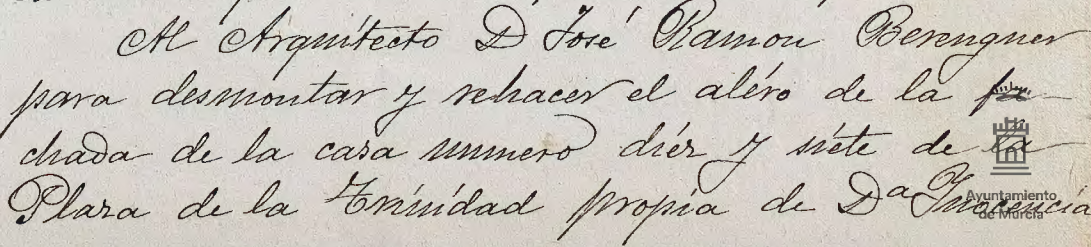 Al Arquitecto D José Ramon Berenguer
para desmontar y rehacer el aléro de la fa-
chada de la casa numero diéz y siéte de la
Plaza de la Trinidad propia de Dª Inocencia
Ayuntamiento
de Murcia